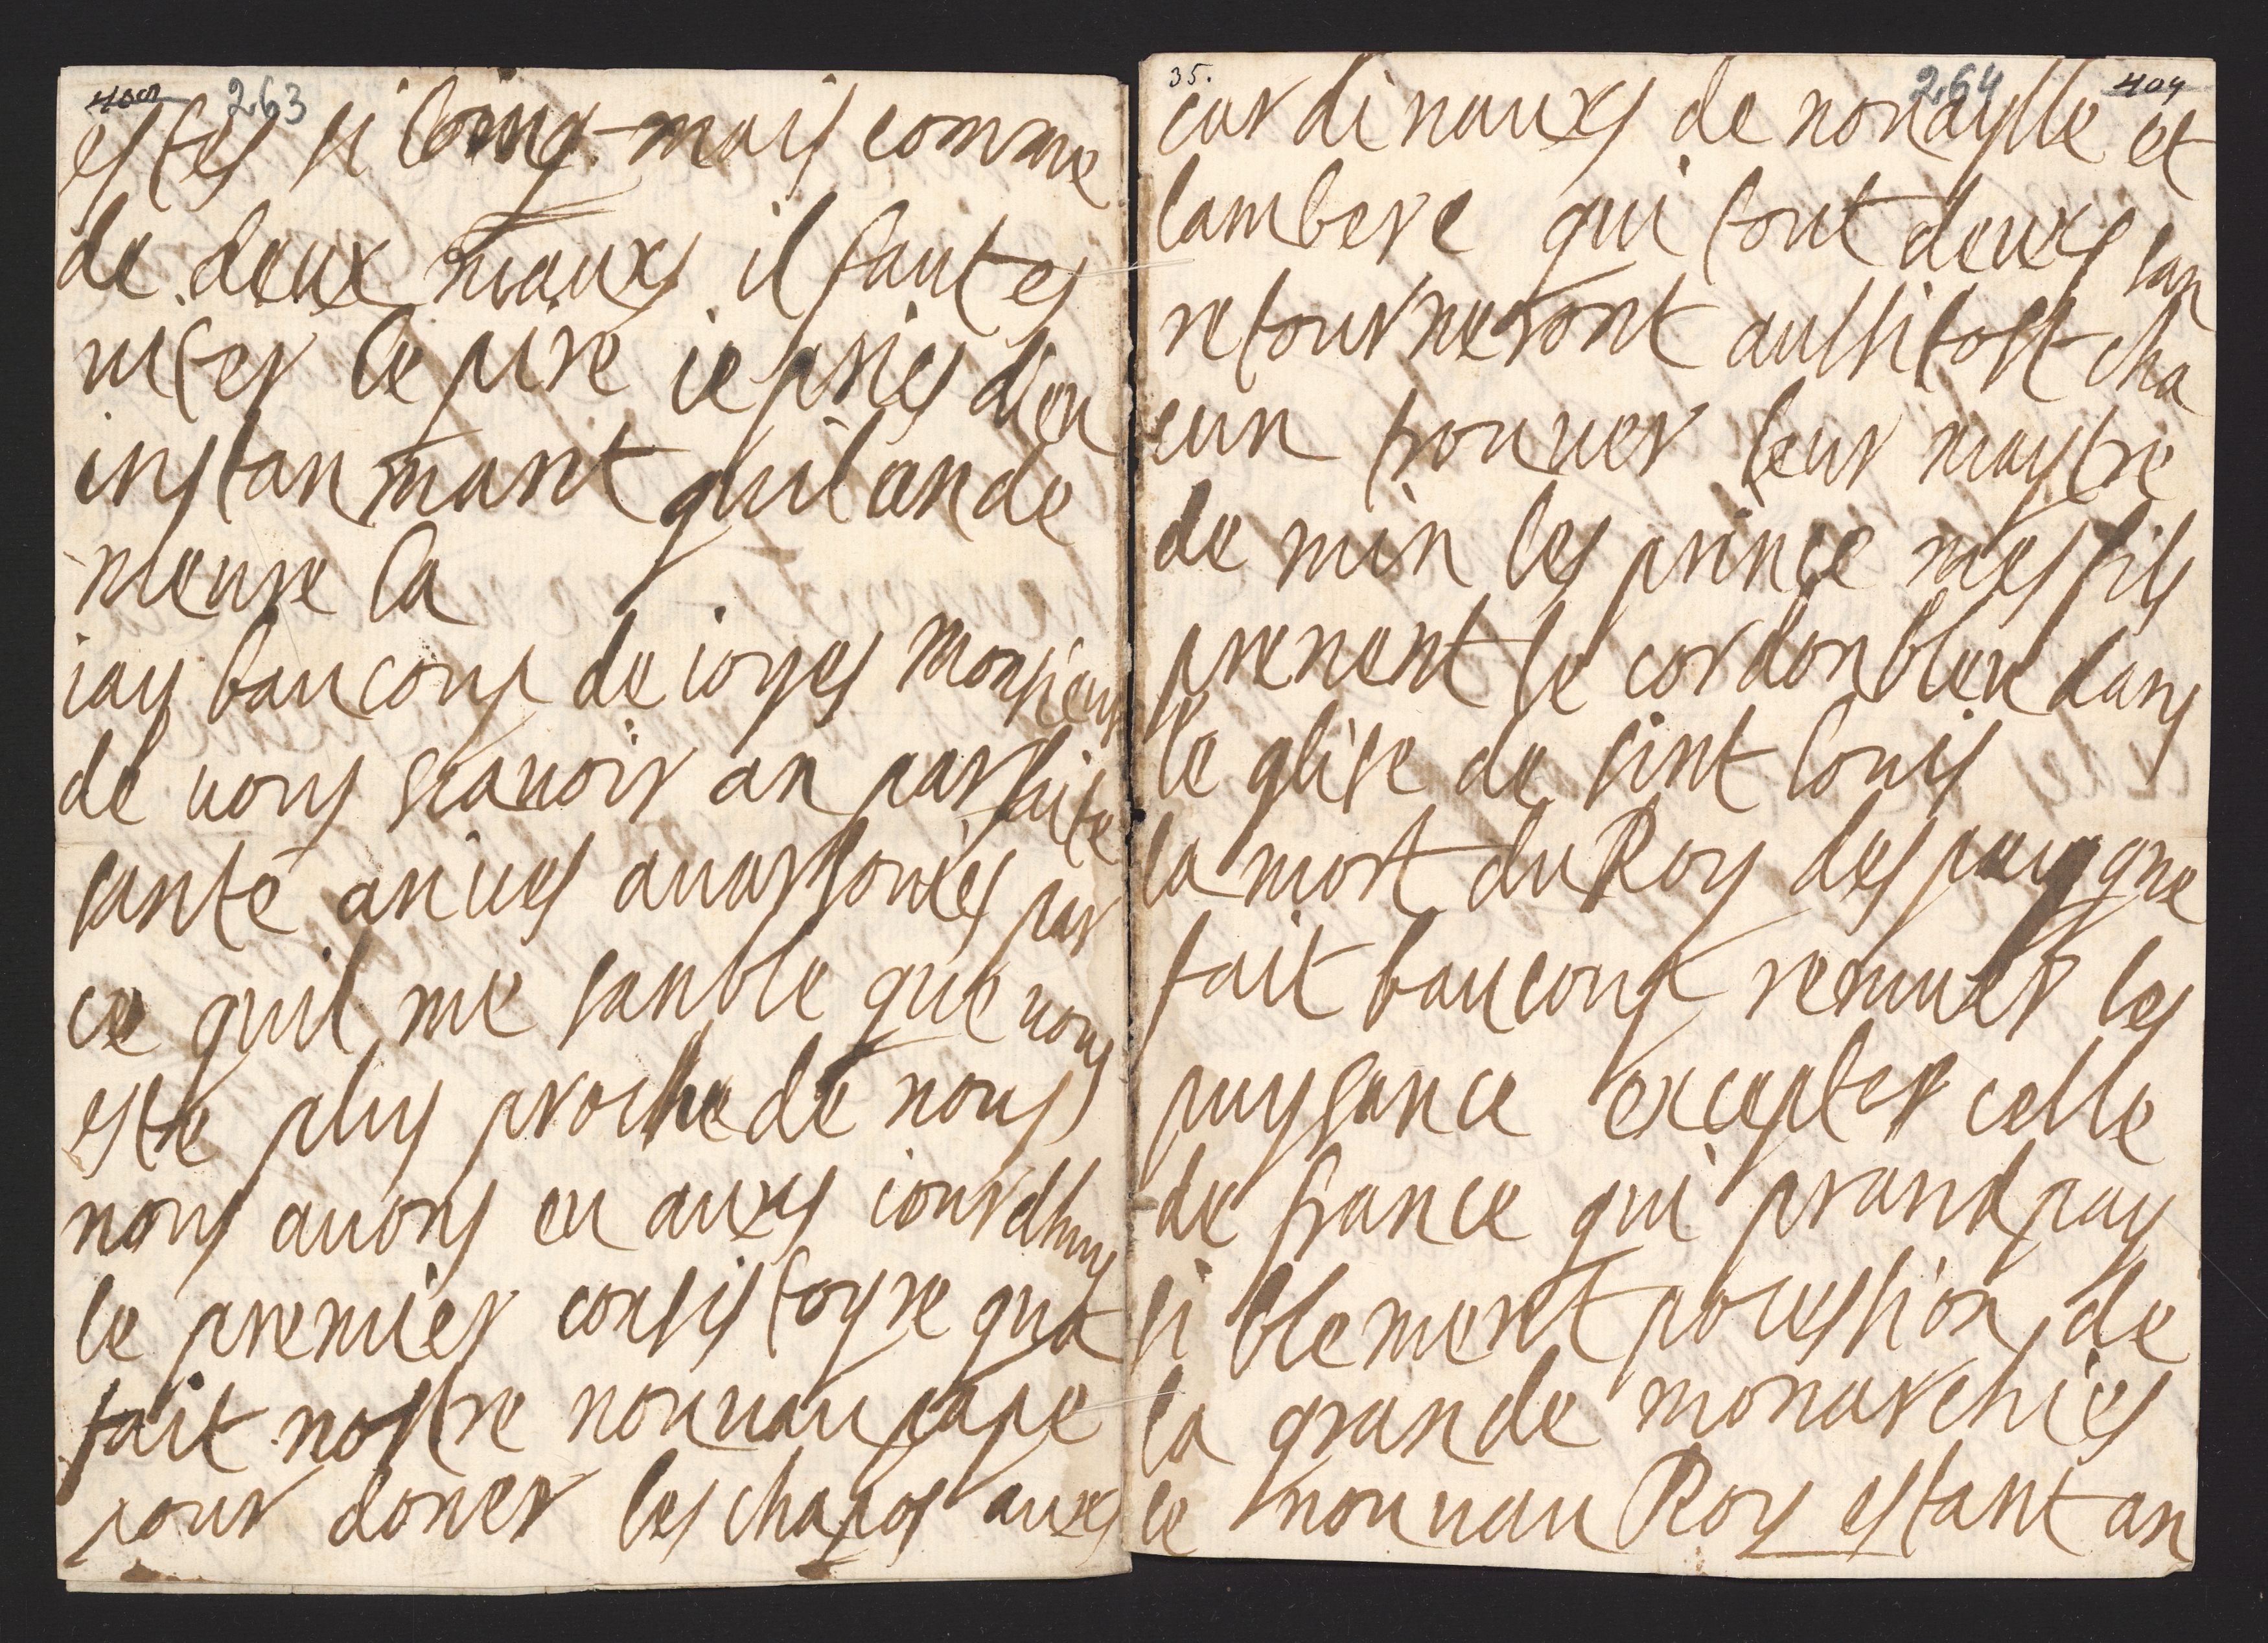 263
estes si loing mais comme
de deux mauxs il faut es
uiter le pire ie pries dieu
instanmant quil an de
meure la
iay baucoup de ioyes monsieur
de vous scauoir an parfaite
santé aniues auarsouies par
ce quil me sanble que vous
este plus proche de nous
nous auons eu auxs iourdhuy
le premier consistoyre qua
fait nostre nouuau pape
pour doner les chapos auxs
35. 264 404
cardinauxs de nouaylle et
lambere qui tout deuxs san
retourneront aussitost cha
cun trouuer leur maytre
de min les prince mes fils
prenent le cordon bleu dans
le glise de sint louis
la mort du Roy despaygne
fait baucoup remuer les
puysance excepter celle
de france qui prand pay
siblement pocession de
la grande monarchies
le nouuau Roy estant an